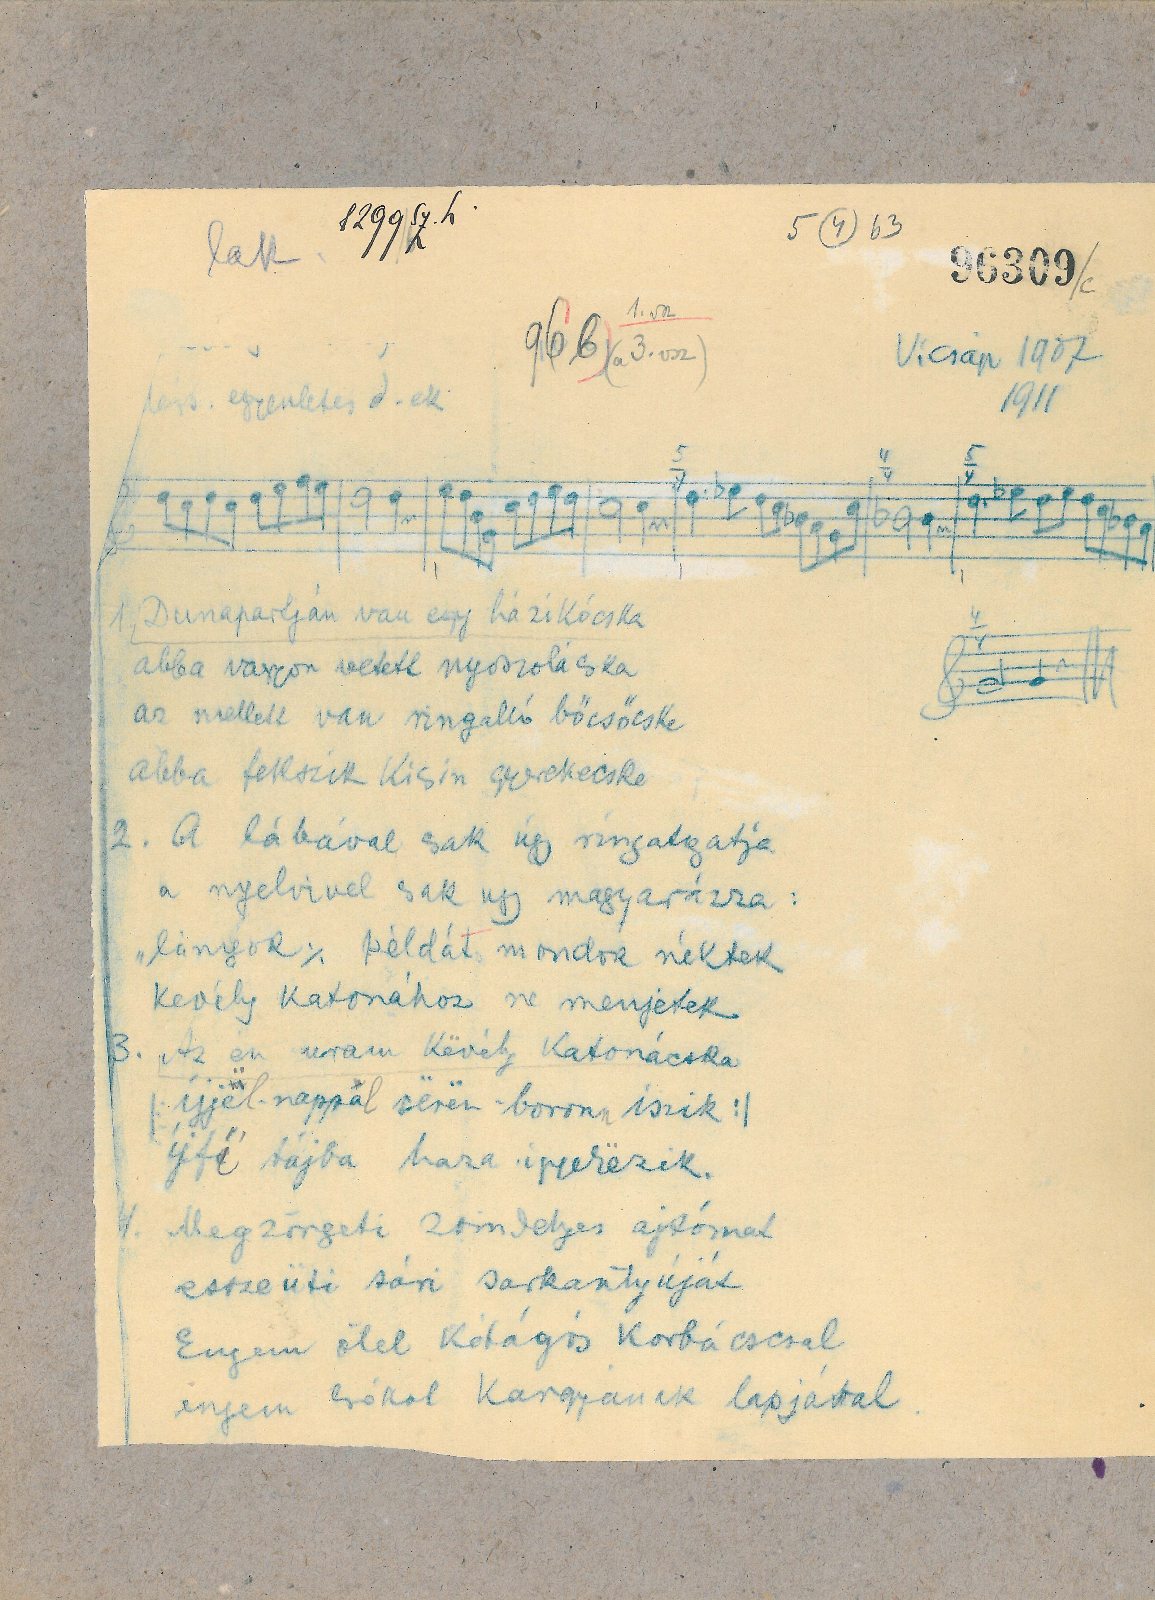 lak.
1299 sz. h.
5 (4) b3
96309/c
96 b) 1. vsz
(a 3. vsz)
Vicsáp 1907
1911
egyenletes ♪-ek
5/4 4/4 5/4
1, Dunapartján van egy házikócska
abba vagyon vetett nyoszolácska
az mellett van ringattó bőcsőcske
abba fekszik kisin gyerekecske
4/4
2. A lábával sak úgy ringatgatja
a nyelvivel sak ugy magyarázza :
„lányok ·/. példát mondok néktek
kevély katonához ne menjetek
3. Az en uram këvély katonácska
|: íjjël-nappal sërën-boronn iszik :|
íjfé tájba haza
4. Megzörgeti zsindelyes ajtómat
esszeüti sári sarkantyúját
Engem ölel kétágós korbácscsal
ingem csókol kargyának lapjával.